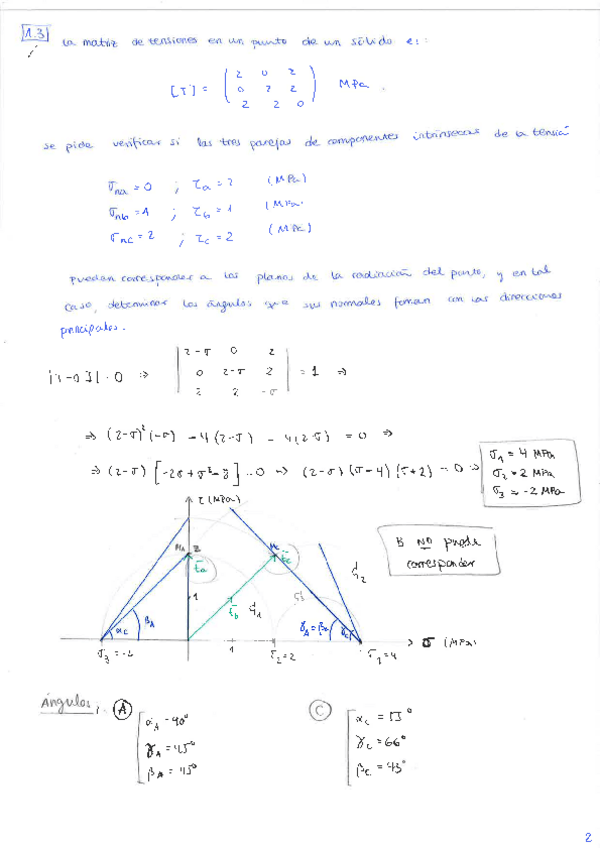 1.3 La matriz de tensiones en un punto de un sólido es:
[T] = ( 2 0 2
0 2 2
2 2 0 ) MPa
se pide verificar si las tres parejas de componentes intrínsecas de la tensión
σna = 0 ; τa = 2 (MPa)
σnb = 1 ; τb = 1 (MPa)
σnc = 2 ; τc = 2 (MPa)
puedan corresponder a los planos de la radiación del punto, y en tal
caso, determinar los ángulos que sus normales forman con las direcciones
principales.
| 2-σ 0 2
0 2-σ 2
2 2 -σ | = 1 ⇒
⇒ (2-σ)² (-σ) - 4(2-σ) - 4(2-σ) = 0 ⇒
⇒ (2-σ) [-2σ + σ² - 8] = 0 ⇒ (2-σ) (σ-4) (σ+2) = 0 ⇒
σ1 = 4 MPa
σ2 = 2 MPa
σ3 = -2 MPa
τ (MPa)
B NO puede
corresponder
MA 2 ta
MC tc
1 tb C1
C2
αc βA
γc
σ3 = -2 1 σ2 = 2 σ1 = 4 σ (MPa)
Ángulos: A
αA = 90°
γA = 45°
βA = 45°
C
γc = 66°
βc = 43°
2